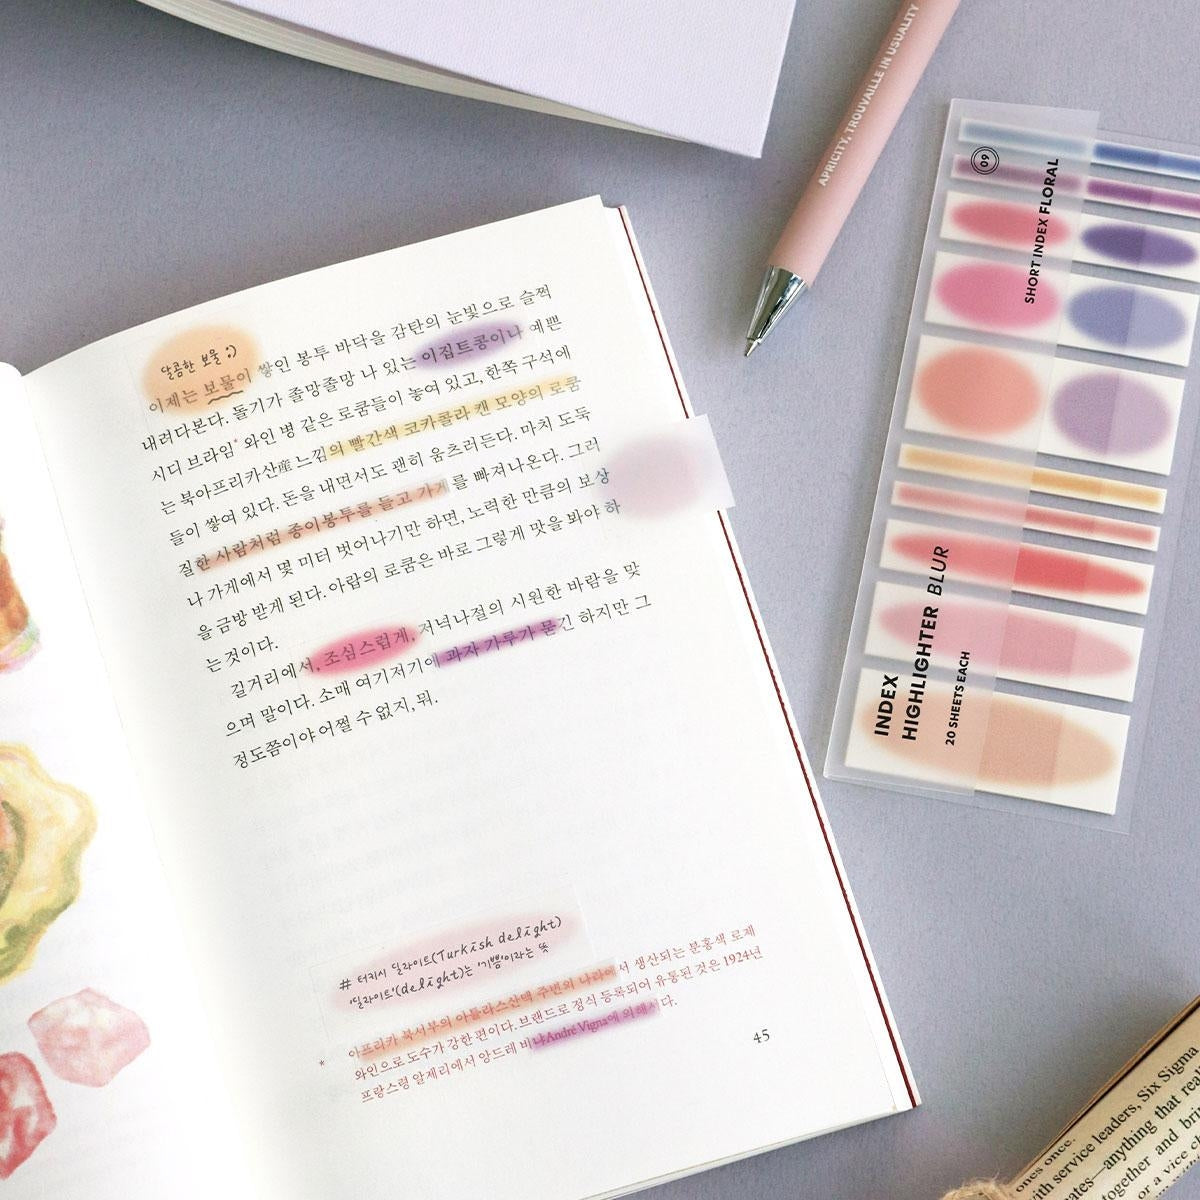 달콤한 보물 ;)
이제는 보물이 쌓인 봉투 바닥을 감탄의 눈빛으로 슬쩍
내려다본다. 돌기가 졸망졸망 나 있는 이집트콩이나 예쁜
시디 브라임* 와인 병 같은 로쿰들이 놓여 있고, 한쪽 구석에
는 북아프리카산産 느낌의 빨간색 코카콜라 캔 모양의 로쿰
들이 쌓여 있다. 돈을 내면서도 괜히 움츠러든다. 마치 도둑
질한 사람처럼 종이봉투를 들고 가게를 빠져나온다. 그러
나 가게에서 몇 미터 벗어나기만 하면, 노력한 만큼의 보상
을 금방 받게 된다. 아랍의 로쿰은 바로 그렇게 맛을 봐야 하
는 것이다.
길거리에서, 조심스럽게, 저녁나절의 시원한 바람을 맞
으며 말이다. 소매 여기저기에 과자 가루가 묻긴 하지만 그
정도쯤이야 어쩔 수 없지, 뭐.
# 터키시 딜라이트(Turkish delight)
'딜라이트'(delight)는 '기쁨'이라는 뜻
* 아프리카 북서부의 아틀라스산맥 주변의 나라에서 생산되는 분홍색 로제
와인으로 도수가 강한 편이다. 브랜드로 정식 등록되어 유통된 것은 1924년
프랑스령 알제리에서 앙드레 비냐André Vigna에 의해서다.
45
APRICITY, TROUVAILLE IN USUALITY
09
SHORT INDEX FLORAL
INDEX
HIGHLIGHTER BLUR
20 SHEETS EACH
ones once.
with service leaders, Six Sigma
anything that
together and
or a vice